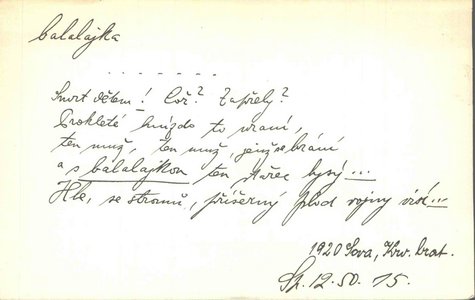 balalajka
. . . . . . .
Smrt dětem! Což? Zapřely?
Prokleté hnízdo to vraní,
ten muž, ten muž, jenž se brání
a s balalajkou ten stařec lysý...
Hle, se stromů, příšerný plod vojny visí...
1920 Sova, Krv. brat.
Sh. 12.50. 75.